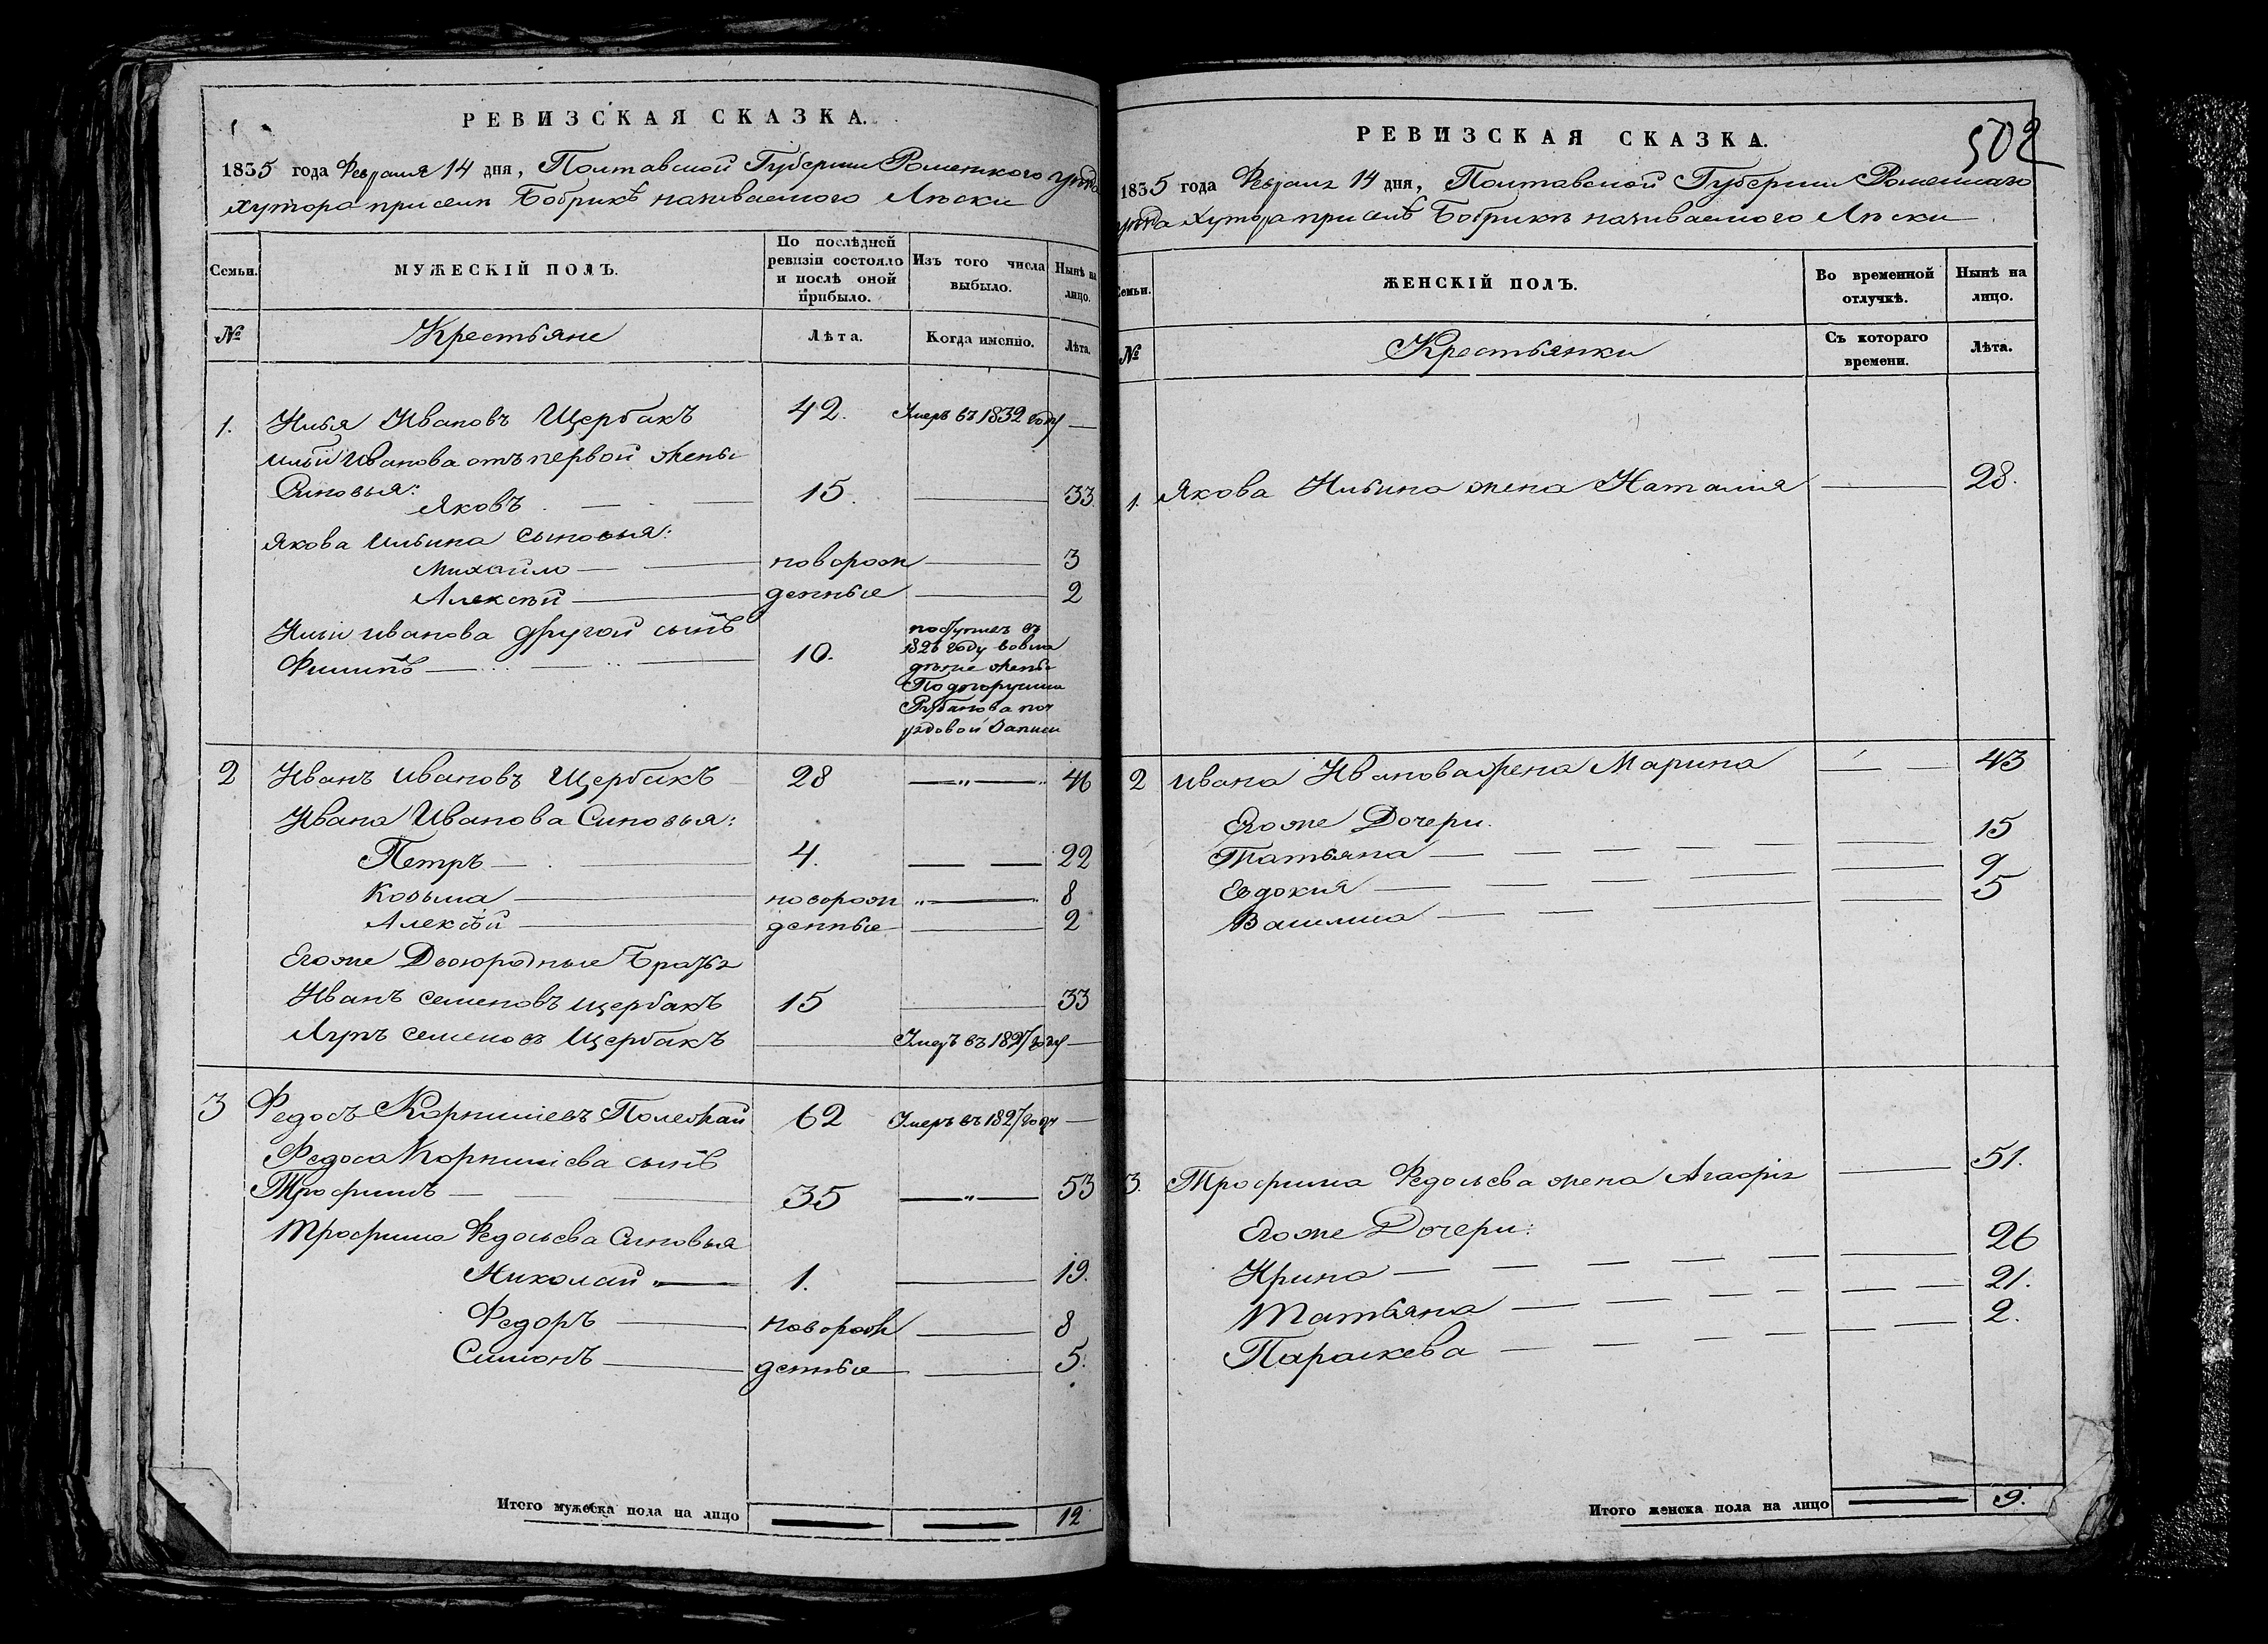 РЕВИЗСКАЯ СКАЗКА.
1835 года Февраля 14 дня, Полтавской Губернии Роменского уезда
хутора при селе Бобрикѣ называемого Лѣски
Семьи.
МУЖЕСКІЙ ПОЛЪ.
По послѣдней
ревизіи состояло
и послѣ оной
прибыло.
Изъ того числа
выбыло.
Нынѣ на
лицо.
№
Крестьяне
Лѣта.
Когда именно.
Лѣта.
1. Илья Ивановъ Щербакъ 42. Умеръ въ 1832 году —
Ильи Иванова отъ первой жены
Синовья:
Яковъ 15. 33.
Якова Ильина сыновья:
Михайло новорож 3
Алексѣй денные 2
Ильи иванова другой сынъ
Филипъ 10.
поступилъ въ
1826 году вовла
дѣние жены
Подпорутчика
Рубанова по
рядовой записи
2 Иванъ ивановъ Щербакъ 28 46
Ивана Иванова Синовья:
Петръ 4. 22
Козьма новорож 8
Алексѣй денные 2
Егоже Двоюродные Братья
Иванъ семеновъ щербакъ 15 33
семеновъ Щербакъ Умеръ въ 1827 году —
3 Федосъ Корнилиевъ Полежай 62 Умеръ въ 1827 году —
Федоса Корнилиева сынъ
Трофимъ 35 53
Трофима Федосьева Синовья
Николай 1. 19.
Федоръ новорож 8
Симонъ денные 5.
Итого мужеска пола на лицо 12
502
РЕВИЗСКАЯ СКАЗКА.
1835 года Февраля 14 дня, Полтавской Губернии Роменского
уезда Хутора при селѣ Бобрикѣ называемого Лѣски
Семьи.
ЖЕНСКІЙ ПОЛЪ.
Во временной
отлучкѣ.
Нынѣ на
лицо.
№
Крестьянки
Съ котораго
времени.
Лѣта.
1. Якова Ильина жена Наталия 28.
2 Ивана Иванова жена Марина 43
Егоже Дочери.
Татьяна 15
Евдокия 9
Василиса 5
3. Трофима Федосьева жена Агафія 51.
Егоже Дочери:
Ирина 26
Татьяна 21.
Параскева 2.
Итого женска пола на лицо 9.